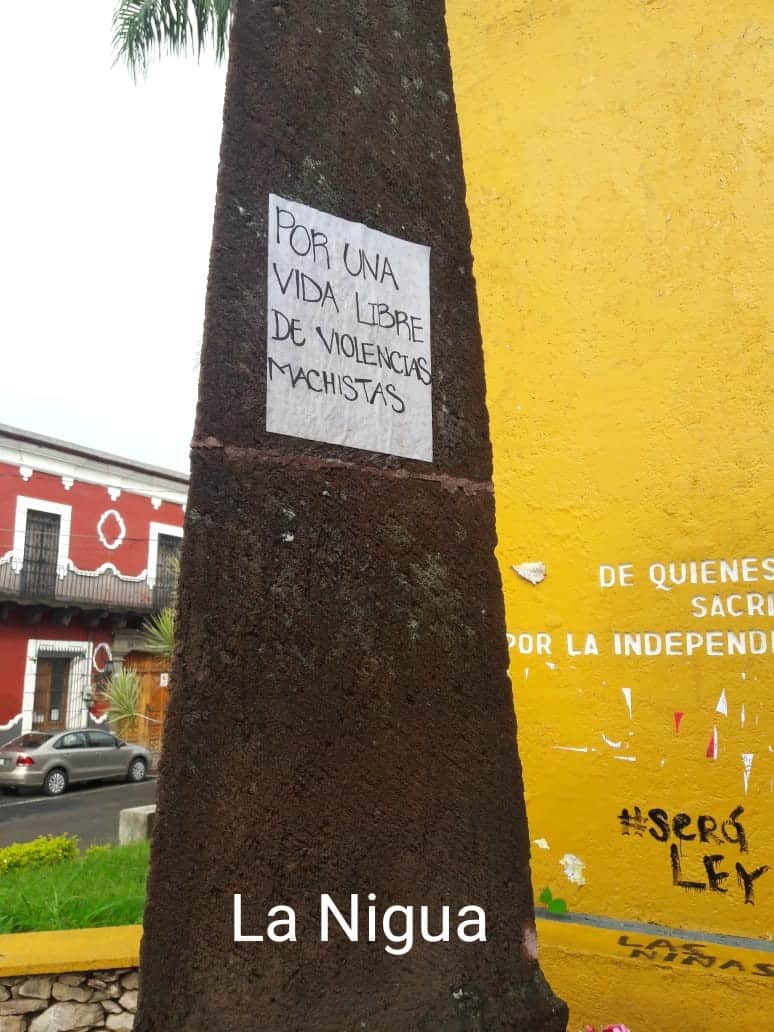 POR UNA
VIDA LIBRE
DE VIOLENCIAS
MACHISTAS
DE QUIENES
SACRI
POR LA INDEPENDE
#Será
LEY
LAS
NIÑAS
La Nigua